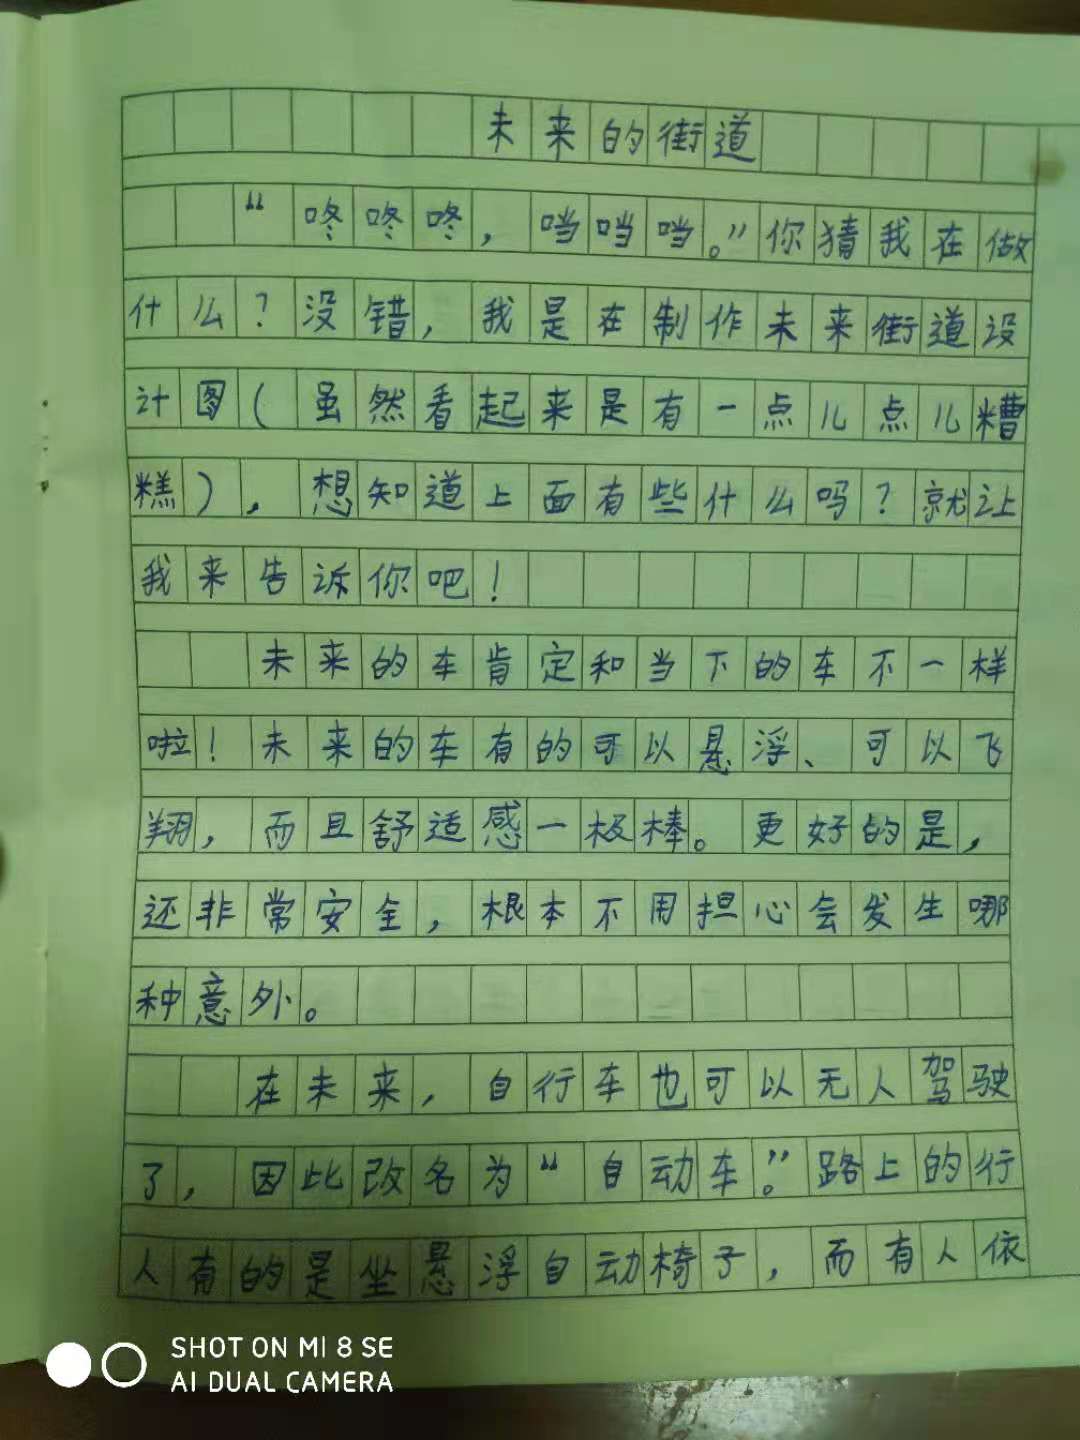 未来的街道
“咚咚咚，当当当。”你猜我在做
什么？没错，我是在制作未来街道设
计图（虽然看起来是有一点儿点儿糟
糕），想知道上面有些什么吗？就让
我来告诉你吧！
未来的车肯定和当下的车不一样
啦！未来的车有的可以悬浮、可以飞
翔，而且舒适感一极棒。更好的是，
还非常安全，根本不用担心会发生哪
种意外。
在未来，自行车也可以无人驾驶
了，因此改名为“自动车”。路上的行
人有的是坐悬浮自动椅子，而有人依
SHOT ON MI 8 SE
AI DUAL CAMERA